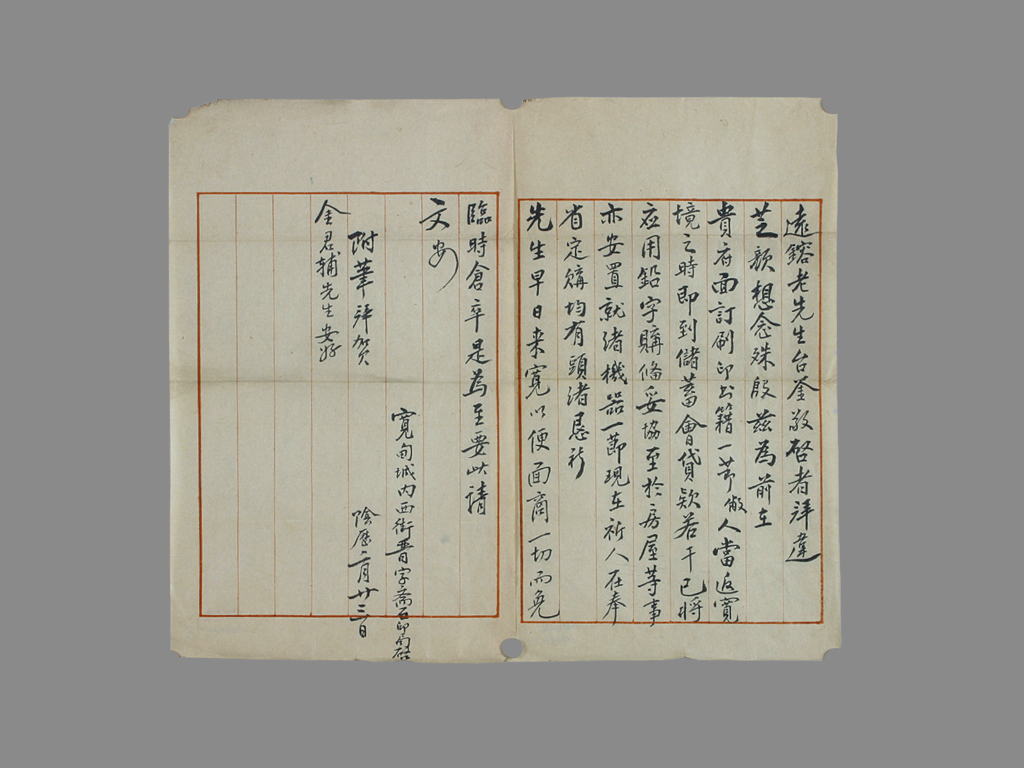 遠鎔老先生台鉴敬啓者拜違
芝顏想念殊殷茲為前在
貴府面訂刷印書籍一节俶人當返寬
境之時即到儲蓄會貸欵若干已將
应用鉛字購俻妥協至於房屋等事
亦安置就渚機器一節現在祈人在奉
省定購均有頭渚恳祈
先生早日来寬以便面商一切而免
臨時倉卒是為至要此請
文安
附筆拜賀
金君輔先生安好
寬甸城内西街晋字斋石印局啓
陰歷二月廿三日